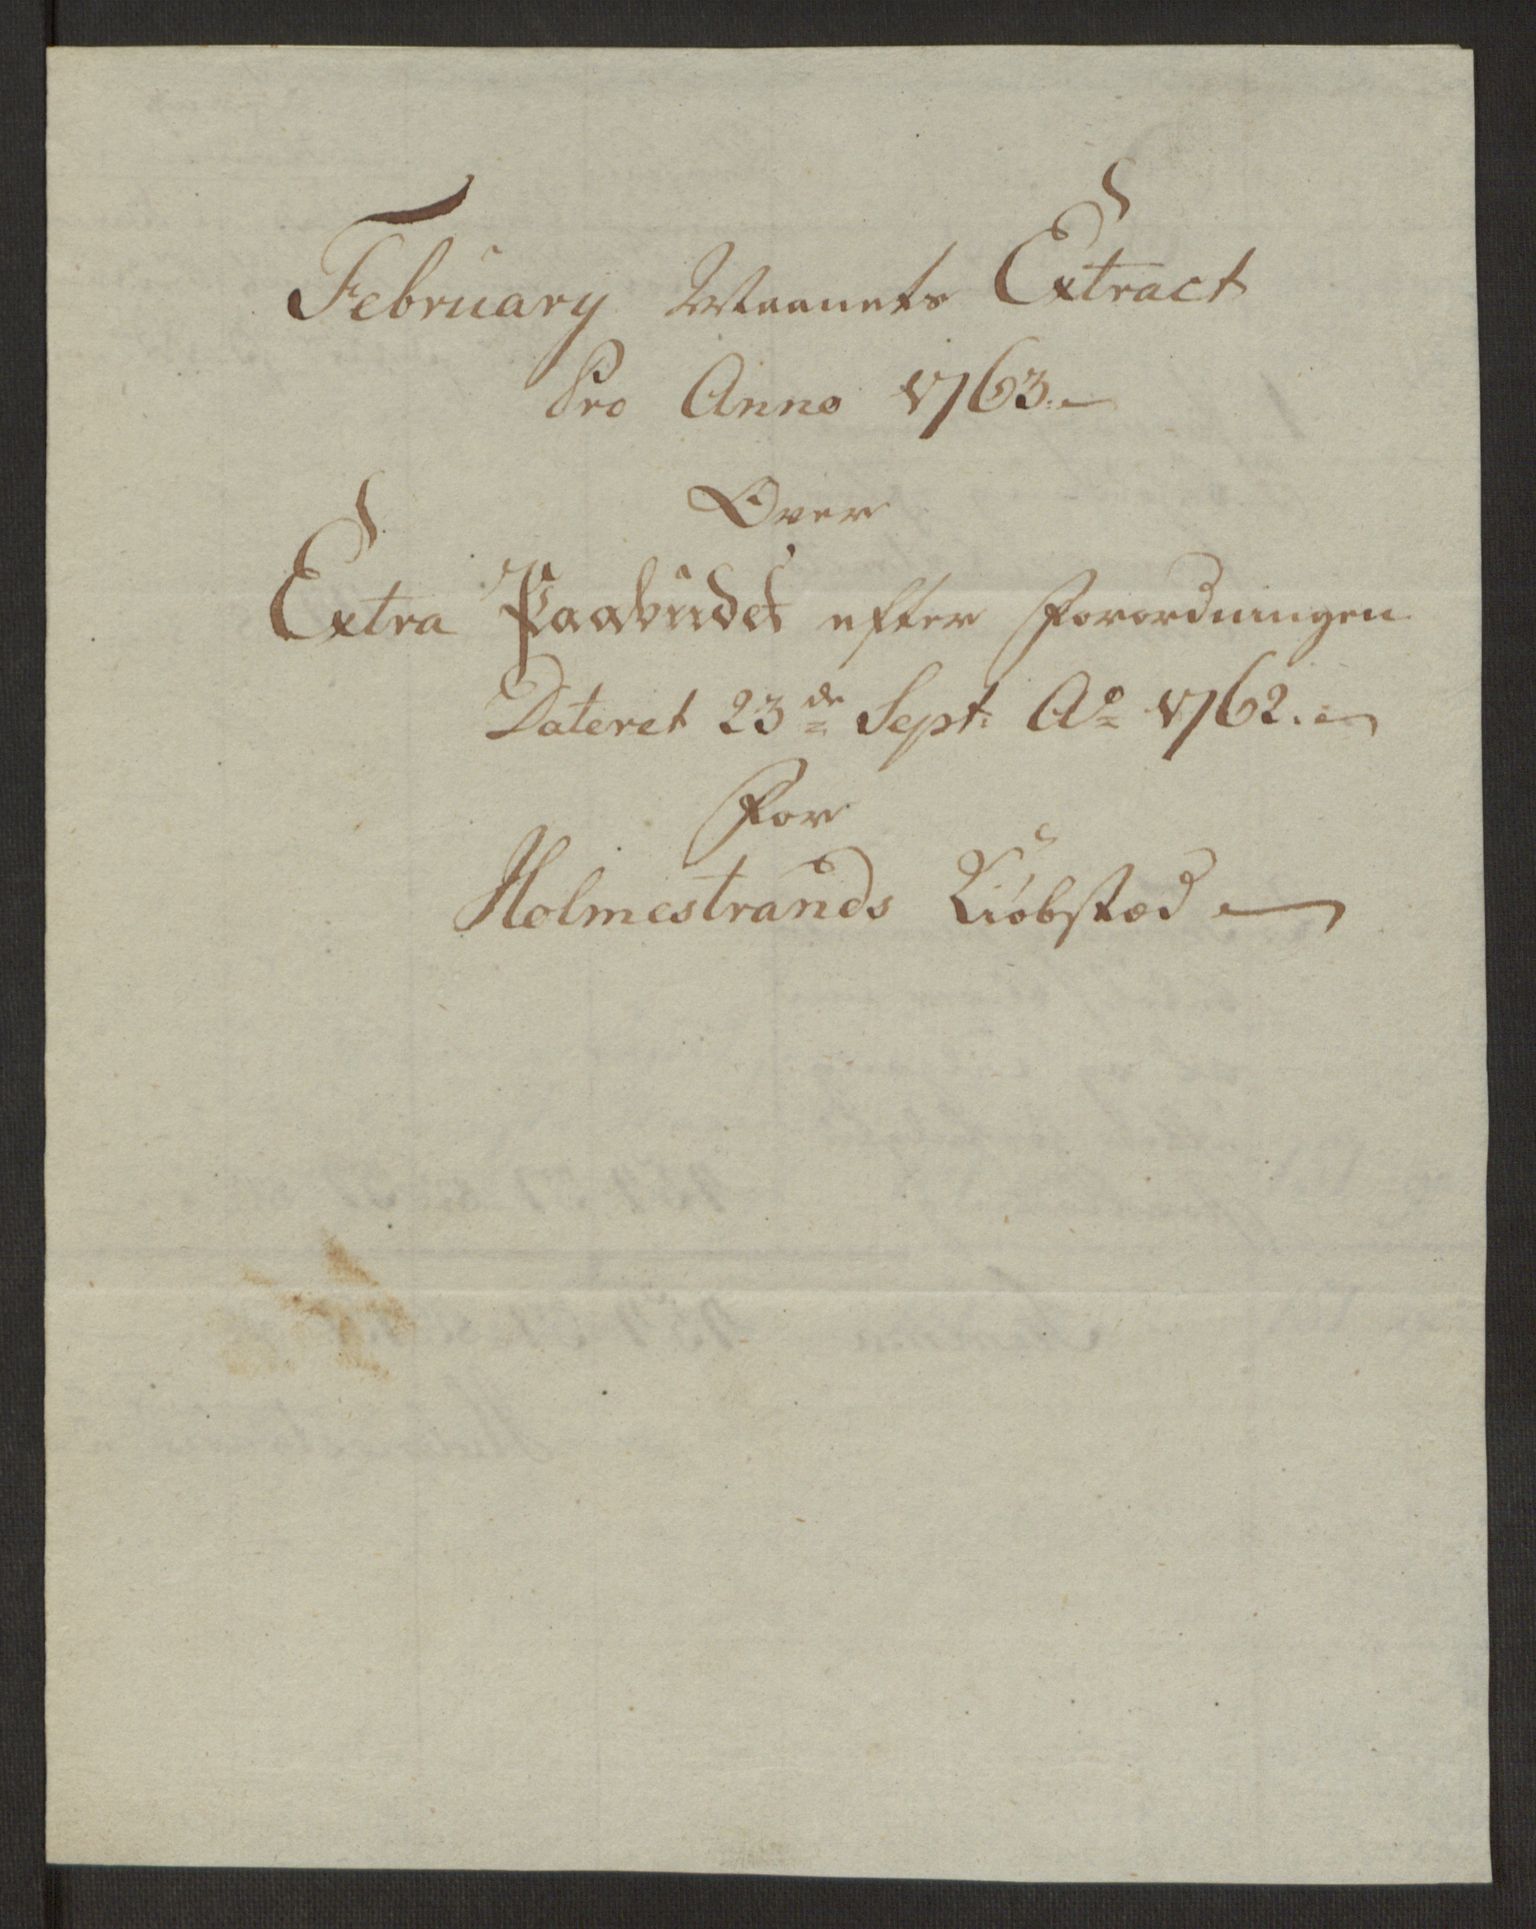 February Maanets Extract
Pro Anno 1763.
Over
Extra Paabudet efter Forordningen
Dateret 23de Sept: Ao 1762.
For
Holmestrands Kiøbstæd